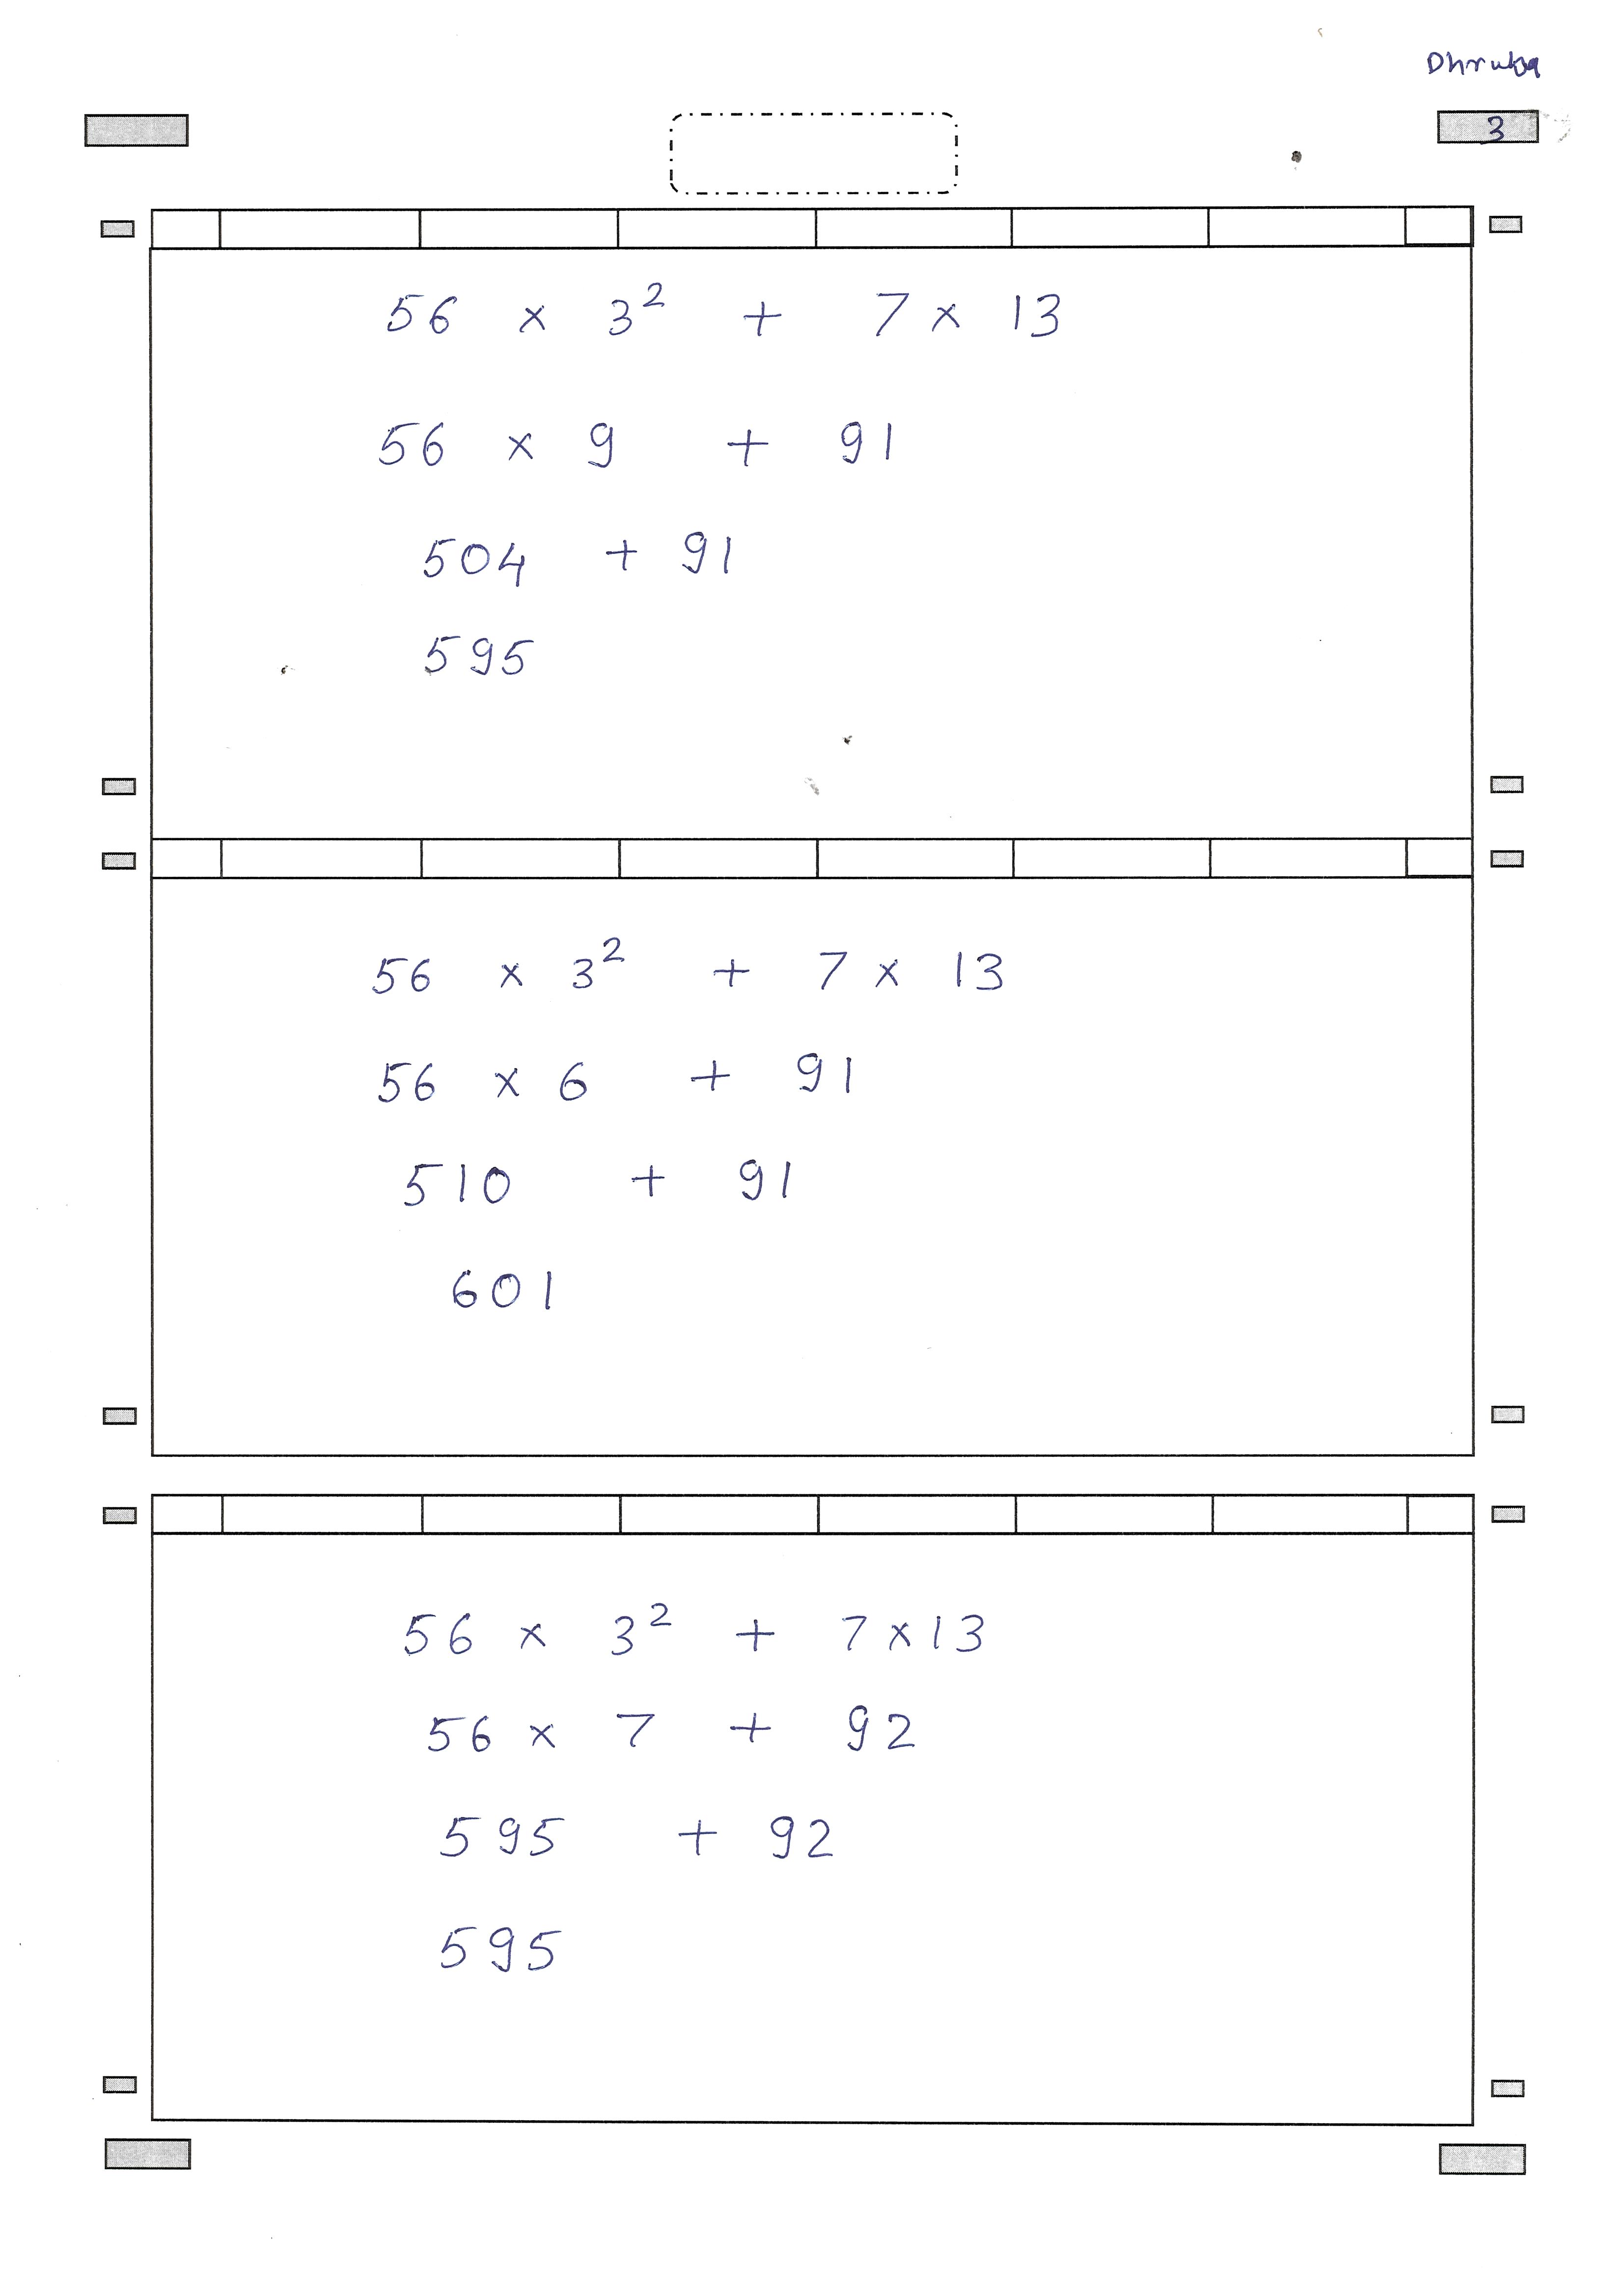 Dhruba
3
56 × 3² + 7 × 13
56 × 9 + 91
504 + 91
595
56 × 3² + 7 × 13
56 × 6 + 91
510 + 91
601
56 × 3² + 7 × 13
56 × 7 + 92
595 + 92
595